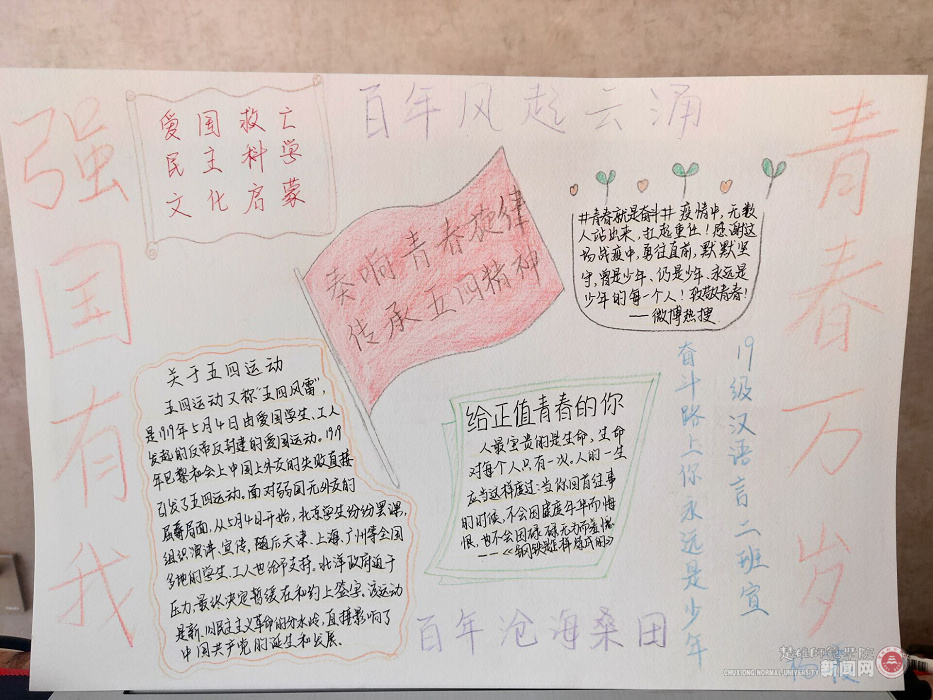 强国有我
爱国救亡
民主科学
文化启蒙
百年风起云涌
青春万岁
奏响青春旋律
传承五四精神
#青春就是奋斗#疫情中,无数
人站出来,扛起重任!感谢这
场战疫中,勇往直前,默默坚
守,曾是少年、仍是少年、永远是
少年的每一个人!致敬青春!
——微博热搜
关于五四运动
五四运动又称“五四风雷”,
是1919年5月4日由爱国学生、工人
发起的反帝反封建的爱国运动。1919
年巴黎和会上中国上外交的失败直接
引发了五四运动。面对弱国无外交的
屈辱局面,从5月4日开始,北京学生纷纷罢课,
组织演讲、宣传,随后天津、上海、广州等全国
多地的学生、工人也给予支持。北洋政府迫于
压力,最终决定暂缓在和约上签字。该运动
是新、旧民主主义革命的分水岭,直接影响了
中国共产党的诞生和发展。
给正值青春的你
人最宝贵的是生命,生命
对每个人只有一次。人的一生
应当这样度过:当你回首往事
的时候,不会因虚度年华而悔
恨,也不会因碌碌无为而羞愧
——《钢铁是怎样炼成的》
19级汉语言二班宣
奋斗路上你永远是少年
百年沧海桑田
楚雄师范学院
CHUXIONG NORMAL UNIVERSITY
新闻网